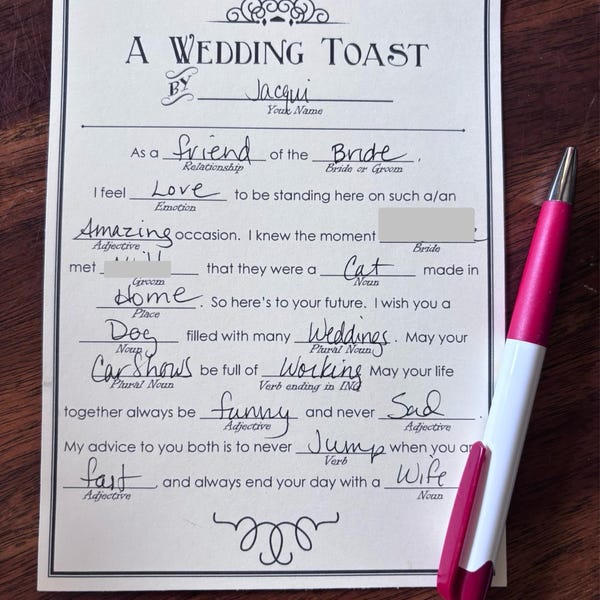 A WEDDING TOAST
BY Jacqui
Your Name
As a friend of the Bride.
Relationship Bride or Groom
I feel Love to be standing here on such a/an
Emotion
Amazing occasion. I knew the moment
Adjective Bride
met that they were a Cat made in
Groom Noun
Home. So here's to your future. I wish you a
Place
Dog filled with many Weddings. May your
Noun Plural Noun
Car Shows be full of Working May your life
Plural Noun Verb ending in ING
together always be funny and never Sad.
Adjective Adjective
My advice to you both is to never Jump when you ar
Verb
fast, and always end your day with a Wife
Adjective Noun